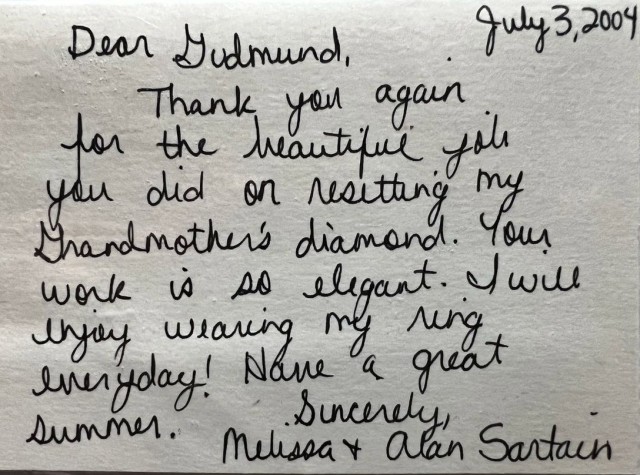 July 3, 2004
Dear Gudmund,
Thank you again
for the beautiful job
you did on resetting my
Grandmother's diamond. Your
work is so elegant. I will
enjoy wearing my ring
everyday! Have a great
summer. Sincerely,
Melissa + Alan Sartain